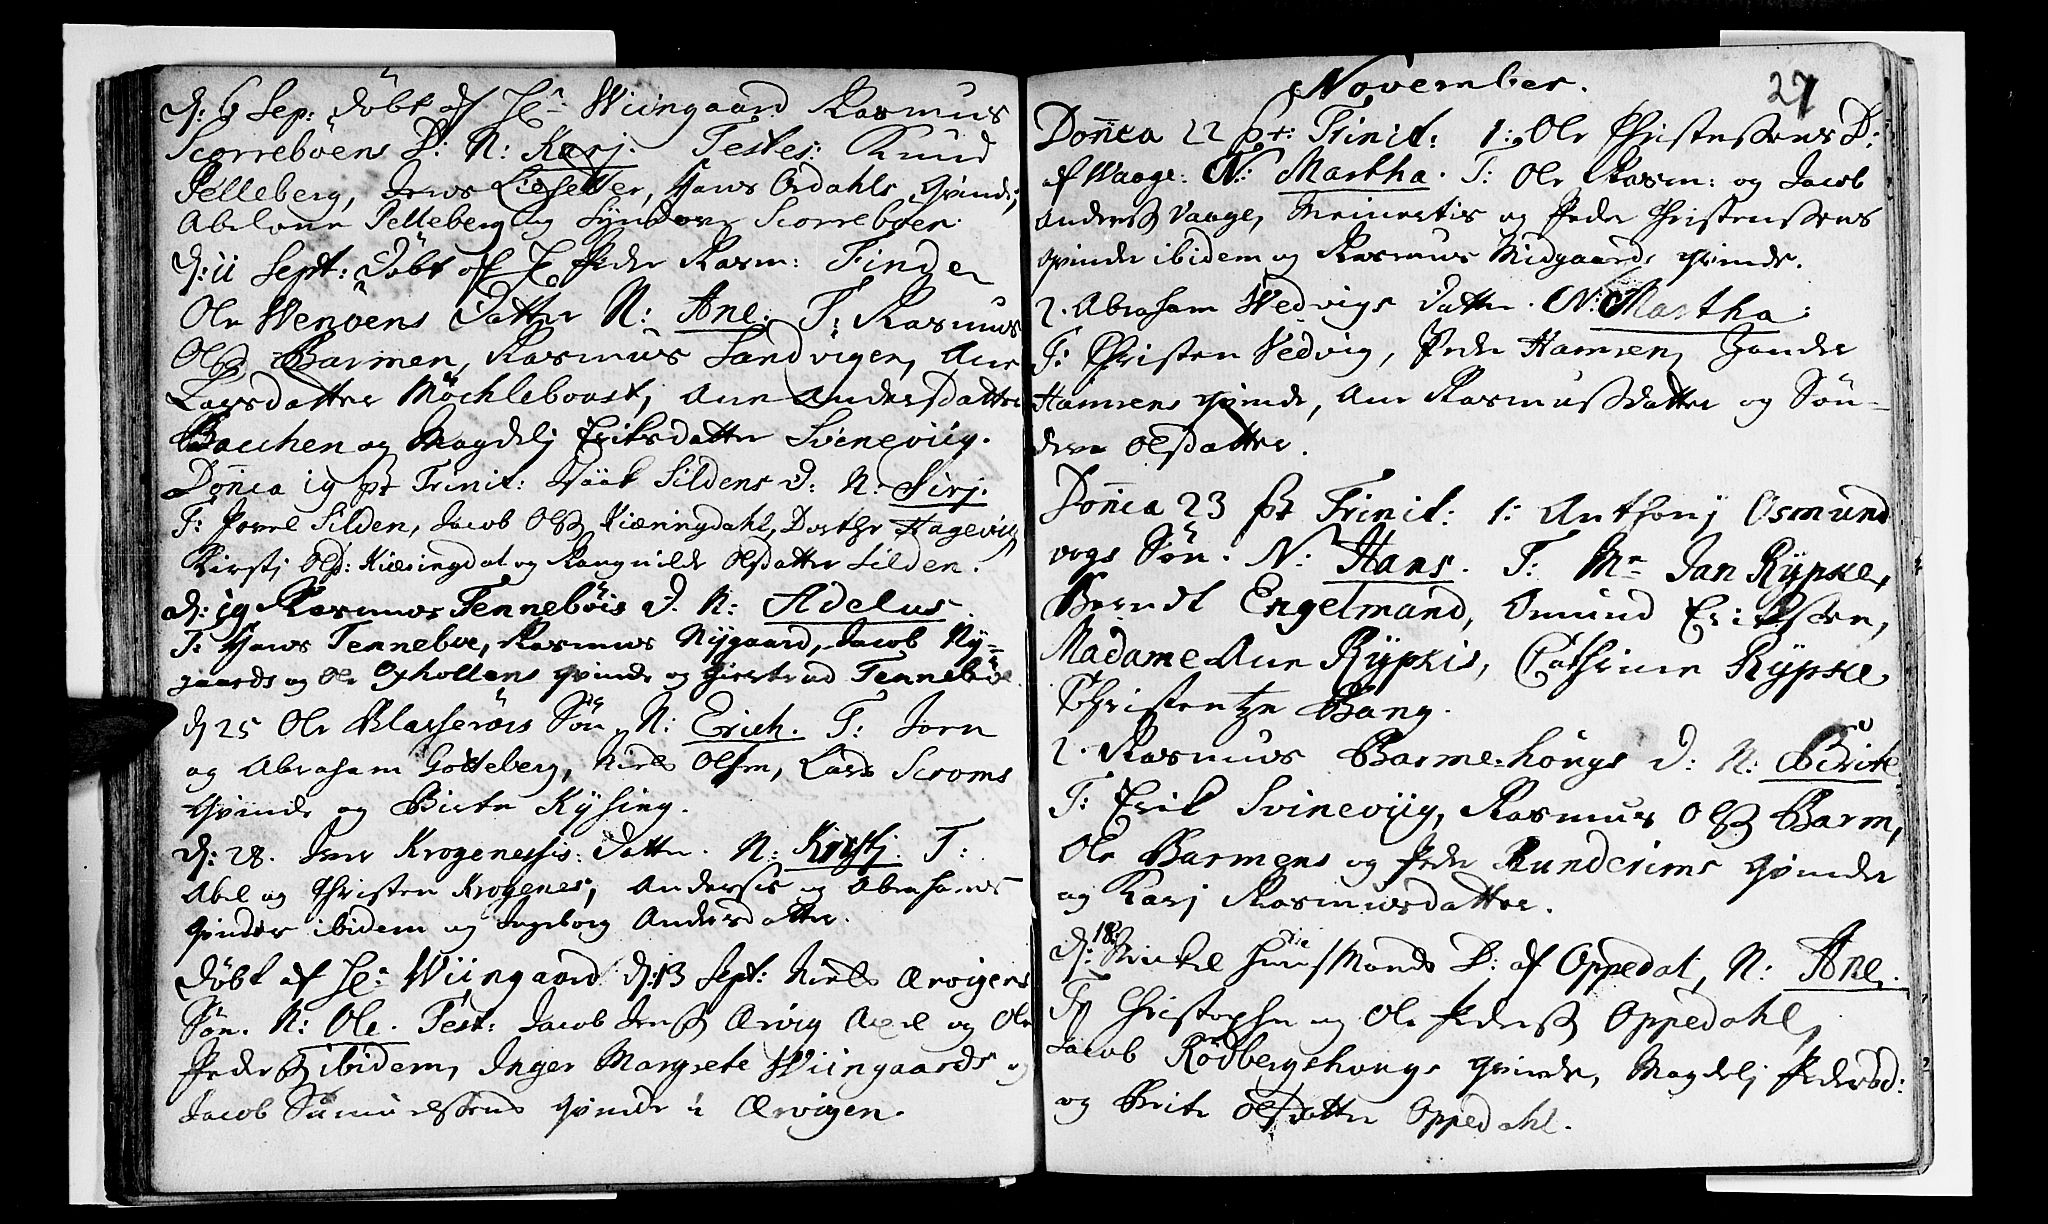 d: 6 Sep: döbt af Hr Wiingaard Rasmus
Scorreböens D: N: Karj. Testes: Knud
Pelleberg, Jens Liesetter, Hans Ordahls qvinde,
Abelone Pelleberg og Synders Scorreböen.
d: 11 Sept: döbt af Hr Peder Rasm: Finden
Ole Wenöens datter N: Ane. T: Rasmus
Olss Barmen, Rasmus Sandvigen, Ane
Larsdatter Möchleboust, Ane Andersdatter
Bacchen og Magdelj Eriksdatter Sveneviig.
Dom̄ca 19 pt Trinit: Isaak Sildens D: N: Sirj.
T: Povel Silden, Jacob Olss Kiæringdahl, Dorthe Hagevig
Kirstj Ols: Kiæringdal og Rangnilde Olsdatter Silden.
d: 19 Rasmus Tenneböis D. N: Adelus.
T: Hans Tenneboe, Rasmus Nygaard, Jacob Ny-
gaards og Ole Oxhollens qvinde og Giertrud Tenneböe.
d 25 Ole Blasseröis Sön N: Erich. T: Jorn
og Abraham Gotteberg, Niels Olsen, Lars Scroms
qvinde og Birte Kysing.
d: 28. Iver Krogenessis datter. N: Kirstj. T:
Abel og Christen Krogenes, Andersis og Abrahams
qvinder ibidem og Ingeborg Andersdatter.
döbt af Hr Wiingaard d: 13 Sept: Niels Ærvigens
Sön. N: Ole. Test: Jacob Jenss Ærvig Axel og Ole
Pederss ibidem, Inger Margrete Wiingaards og
Jacob Samuelssens qvinde i Ærvigen.
27
November.
Dom̄ca 22 pt: Trinit: 1: Ole Christenssens D:
af Waage: N: Martha. T: Ole Rasm: og Jacob
Anderss Vaage, Meinertis og Peder Christenssens
qvinder ibidem og Rasmus Midgaards qvinde.
2. Abraham Wedvigs datter. N: Martha.
T: Christen Vedvig, Peder Hamsen, Zander
Hamsens qvinde, Ane Rasmussdatter og Sön-
dere Olsdatter.
Dom̄ca 23 pt Trinit: 1: Anthonj Osmund
vogs Sön. N: Hans. T: Mr Jan Rypke,
Berndt Engelmand, Omund Erikssen,
Madame Ane Rypkis, Cathrine Rypke
Christentze Bang.
2. Rasmus Barme-höugs D: N: Birite
T: Erik Svineviig, Rasmus Olss Barm,
Ole Barmens og Peder Runderims qvinder
og Karj Rasmusdatter.
d: 18: Mickel huusMands D: af Oppedal, N: Ane.
T: Christopher og Ole Pederss Oppedahl,
Jacob Rödbergshougs qvinde, Magdelj Pedersd:
og Brite Olsdatter Oppedahl.